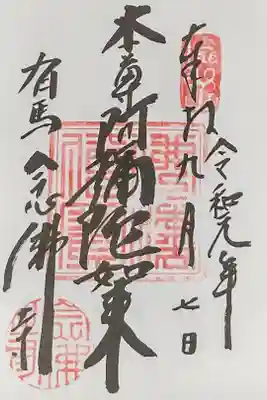 奉拝
令和元年
九月七日
本尊阿弥陀如来
有馬念佛寺